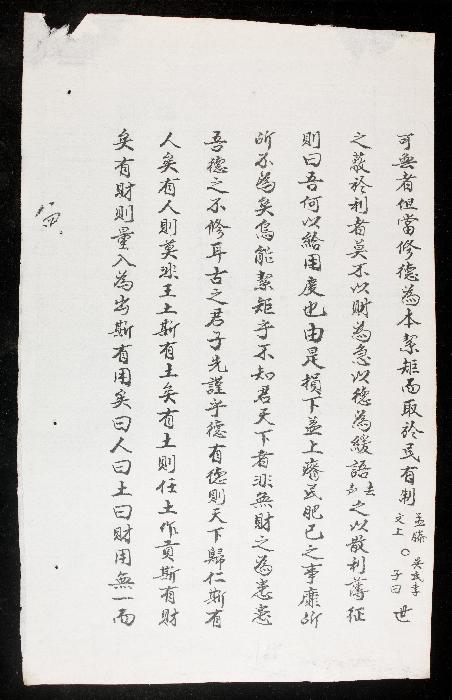 可無者但當修德為本絜矩而取於民有制 孟滕文上 吳氏季子曰 ○ 世
之蔽於利者莫不以財為急以德為緩語去聲之以散利薄征
則曰吾何以給用度也由是損下益上瘠民肥己之事靡所
所不為矣烏能絜矩乎不知君天下者非無財之為患患
吾德之不修耳古之君子先謹乎德有德則天下歸仁斯有
人矣有人則莫非王土斯有土矣有土則任土作貢斯有財
矣有財則量入為出斯有用矣曰人曰土曰財用無一而